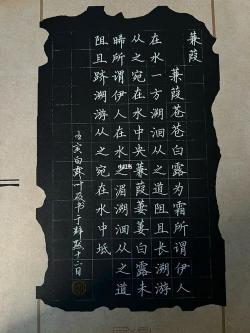 蒹葭
蒹葭苍苍白露为霜所谓伊人
在水一方溯洄从之道阻且长溯游
从之宛在水中央蒹葭萋萋白露未
晞所谓伊人在水之湄溯洄从之道
阻且跻溯游从之宛在水中坻
壬寅白露叶书于十二日